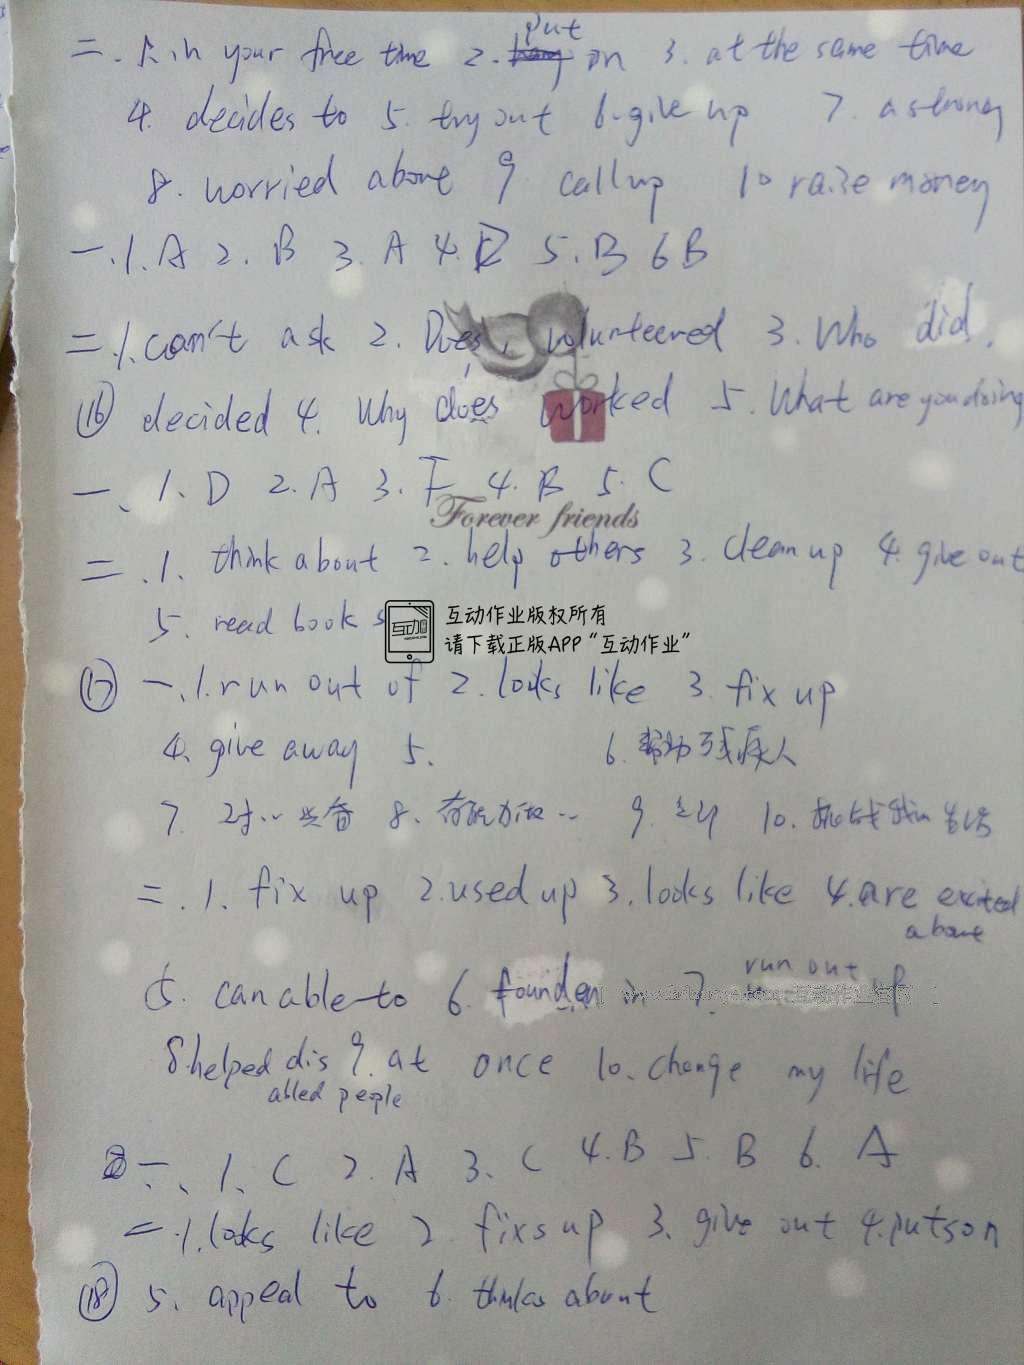 二.1. in your free time 2. put on 3. at the same time
4. decides to 5. try out 6. give up 7. a strong
8. worried above 9 call up 10 raise money
一.1. A 2. B 3. A 4. 5. B 6 B
二.1. can't ask 2. Does, volunteered 3. Who did.
⑯ decided 4. Why does worked 5. What are you doing
一、1. D 2. A 3. F 4. B 5. C
Forever friends
二.1. think about 2. help others 3. clean up 4. give out
5. read books
互动作业版权所有
请下载正版APP“互动作业”
⑰ 一、1. run out of 2. looks like 3. fix up
4. give away 5. 6. 帮助残疾人
7. 对…兴奋 8. 有能力做… 9. 立即 10. 生活
二.1. fix up 2. used up 3. looks like 4. are excited
above
5. can able to 6. in 7. run out of
互动作业官网
8. helped dis 9. at once 10. change my life
abled people
一、1. C 2. A 3. C 4. B 5. B 6. A
二.1. looks like 2. fixs up 3. give out 4. puts on
⑱ 5. appeal to 6. thinks about